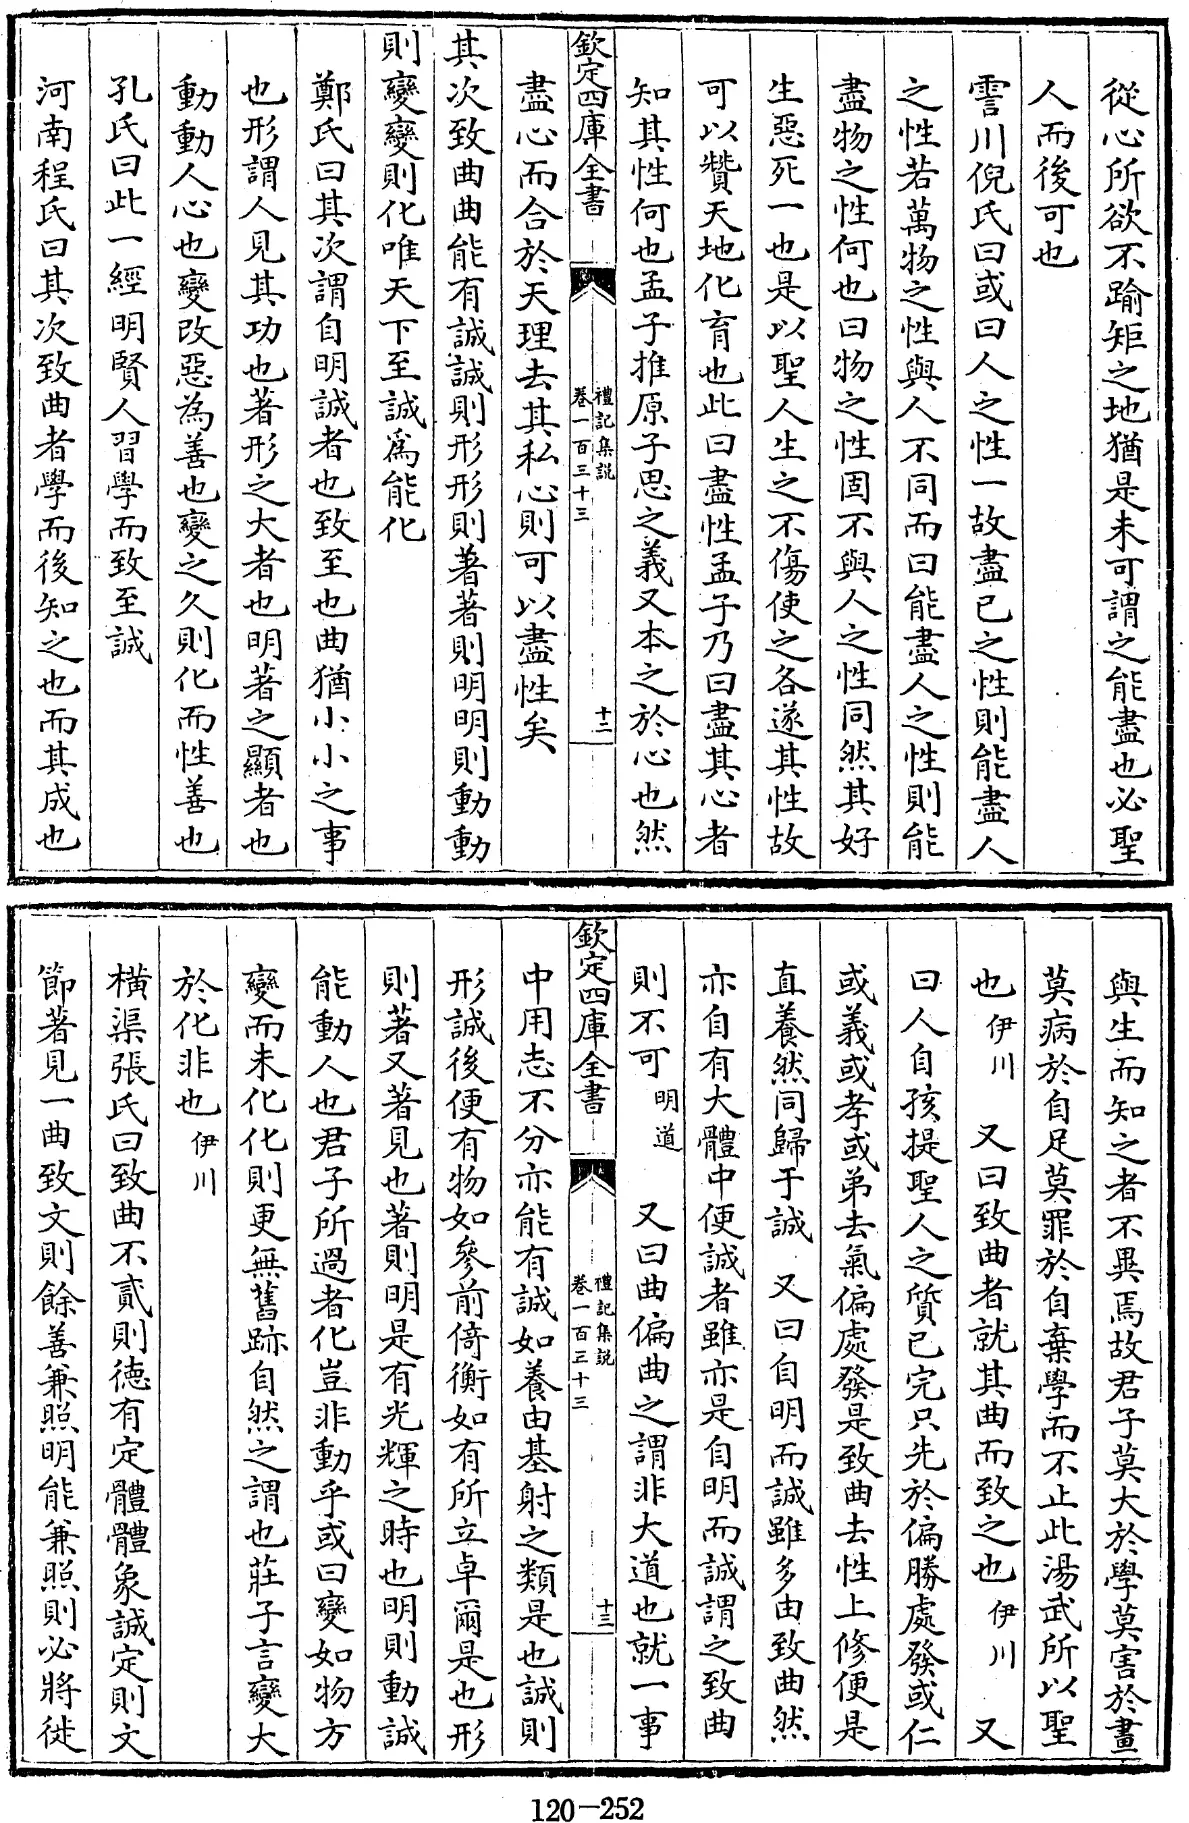 從心所欲不踰矩之地猶是未可謂之能盡也必聖
人而後可也
霅川倪氏曰或曰人之性一故盡已之性則能盡人
之性若萬物之性與人不同而曰能盡人之性則能
盡物之性何也曰物之性固不與人之性同然其好
生惡死一也是以聖人生之不傷使之各遂其性故
可以贊天地化育也此曰盡性孟子乃曰盡其心者
知其性何也孟子推原子思之義又本之於心也然
欽定四庫全書
禮記集説
卷一百三十三
十二
盡心而合於天理去其私心則可以盡性矣
其次致曲曲能有誠誠則形形則著著則明明則動動
則變變則化唯天下至誠爲能化
鄭氏曰其次謂自明誠者也致至也曲猶小小之事
也形謂人見其功也著形之大者也明著之顯者也
動動人心也變改惡為善也變之久則化而性善也
孔氏曰此一經明賢人習學而致至誠
河南程氏曰其次致曲者學而後知之也而其成也
與生而知之者不異焉故君子莫大於學莫害於畫
莫病於自足莫罪於自棄學而不止此湯武所以聖
也伊川 又曰致曲者就其曲而致之也伊川 又
曰人自孩提聖人之質已完只先於偏勝處發或仁
或義或孝或弟去氣偏處發是致曲去性上修便是
直養然同歸于誠 又曰自明而誠雖多由致曲然
亦自有大體中便誠者雖亦是自明而誠謂之致曲
則不可明道 又曰曲偏曲之謂非大道也就一事
欽定四庫全書
禮記集説
卷一百三十三
十三
中用志不分亦能有誠如養由基射之類是也誠則
形誠後便有物如參前倚衡如有所立卓爾是也形
則著又著見也著則明是有光輝之時也明則動誠
能動人也君子所過者化豈非動乎或曰變如物方
變而未化化則更無舊跡自然之謂也莊子言變大
於化非也伊川
橫渠張氏曰致曲不貳則德有定體體象誠定則文
節著見一曲致文則餘善兼照明能兼照則必將徙
120-252